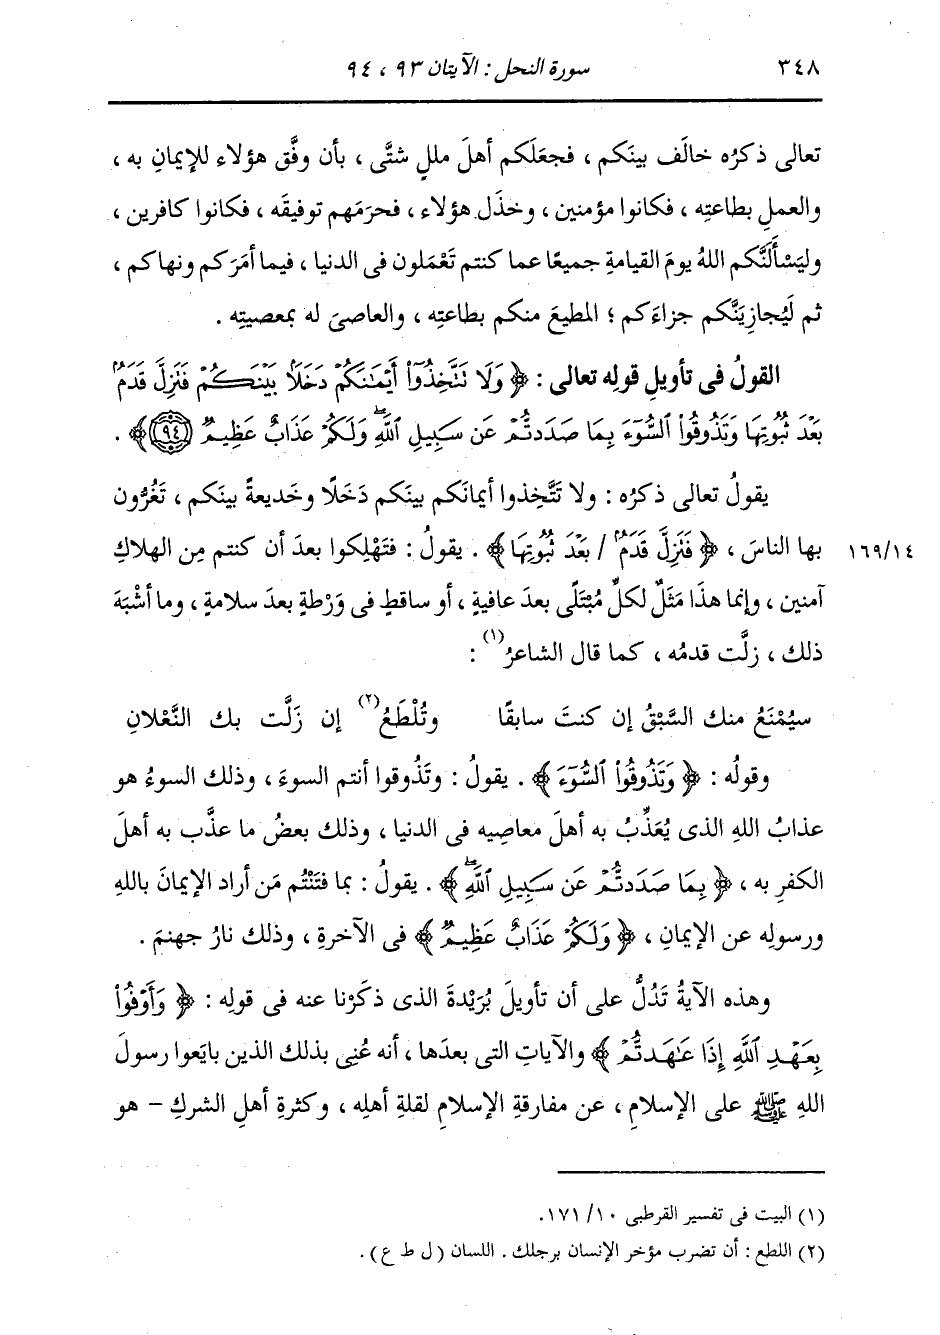 ٣٤٨ سورة النحل : الآيتان ٩٣ ، ٩٤
تعالى ذكرُه خالَف بينَكم ، فجعَلَكم أهلَ مللٍ شتَّى ، بأن وفَّق هؤلاء للإيمانِ به ،
والعملِ بطاعتِه ، فكانوا مؤمنين ، وخذَل هؤلاء ، فحرَمَهم توفيقَه ، فكانوا كافرين ،
وليَسْأَلَنَّكم اللهُ يومَ القيامةِ جميعًا عما كنتم تَعْمَلون فى الدنيا ، فيما أمَرَكم ونهاكم ،
ثم لَيُجازِيَنَّكم جزاءَكم ؛ المطيعَ منكم بطاعتِه ، والعاصىَ له بمعصيتِه .
القولُ فى تأويلِ قولِه تعالى : ﴿ وَلَا نَتَّخِذُوٓا۟ أَيْمَـٰنَكُمْ دَخَلًۢا بَيْنَكُمْ فَتَزِلَّ قَدَمٌۢ
بَعْدَ ثُبُوتِهَا وَتَذُوقُوا۟ ٱلسُّوٓءَ بِمَا صَدَدتُّمْ عَن سَبِيلِ ٱللَّهِ ۖ وَلَكُمْ عَذَابٌ عَظِيمٌ ٩٤ ﴾ .
يقولُ تعالى ذكرُه : ولا تتَّخِذوا أيمانَكم بينَكم دَخَلًا وخديعةً بينَكم ، تَغُرُّون
بها الناسَ ، ﴿ فَتَزِلَّ قَدَمٌۢ / بَعْدَ ثُبُوتِهَا ﴾ . يقولُ : فتَهْلِكوا بعدَ أن كنتم مِن الهلاكِ ١٦٩/١٤
آمنين ، وإنما هذا مَثَلٌ لكلِّ مُبْتَلًى بعدَ عافيةٍ ، أو ساقطٍ فى وَرْطةٍ بعدَ سلامةٍ ، وما أشْبَهَ
ذلك ، زلَّت قدمُه ، كما قال الشاعرُ(١) :
سيُمْنَعُ منك السَّبْقُ إن كنتَ سابقًا وتُلْطَعُ(٢) إن زَلَّت بك النَّعْلانِ
وقولُه : ﴿ وَتَذُوقُوا۟ ٱلسُّوٓءَ ﴾ . يقولُ : وتَذُوقوا أنتم السوءَ ، وذلك السوءُ هو
عذابُ اللهِ الذى يُعَذِّبُ به أهلَ معاصيه فى الدنيا ، وذلك بعضُ ما عذَّب به أهلَ
الكفرِ به ، ﴿ بِمَا صَدَدتُّمْ عَن سَبِيلِ ٱللَّهِ ۖ ﴾ . يقولُ : بما فتَنْتُم مَن أراد الإيمانَ باللهِ
ورسولِه عن الإيمانِ ، ﴿ وَلَكُمْ عَذَابٌ عَظِيمٌ ﴾ فى الآخرةِ ، وذلك نارُ جهنمَ .
وهذه الآيةُ تَدُلُّ على أن تأويلَ بُرَيْدةَ الذى ذكَرْنا عنه فى قولِه : ﴿ وَأَوْفُوا۟
بِعَهْدِ ٱللَّهِ إِذَا عَـٰهَدتُّمْ ﴾ والآياتِ التى بعدَها ، أنه عُنِى بذلك الذين بايَعوا رسولَ
اللهِ ﷺ على الإسلامِ ، عن مفارقةِ الإسلامِ لقلةِ أهلِه ، وكثرةِ أهلِ الشركِ – هو
(١) البيت فى تفسير القرطبى ١٠/ ١٧١.
(٢) اللطع : أن تضرب مؤخر الإنسان برجلك . اللسان ( ل ط ع ) .